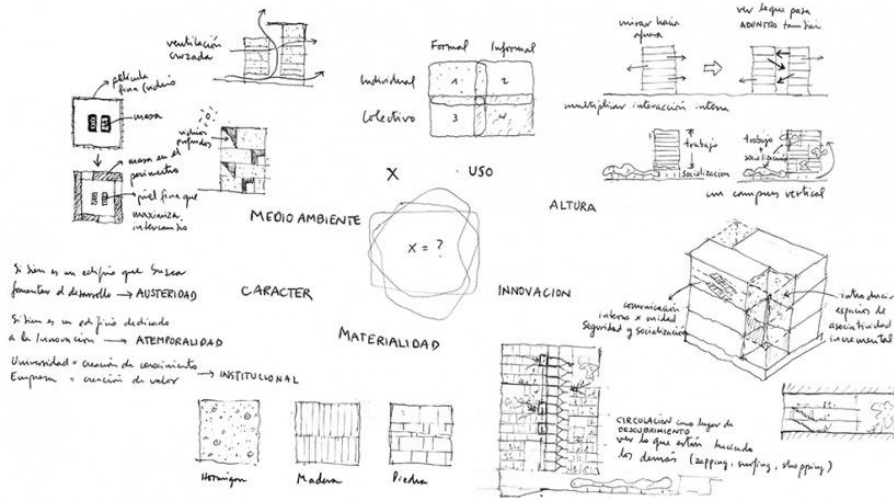 ventilación
cruzada
película
fina (vidrio)
masa
masa en el
perimetro
piel fina que
maximiza
intercambio
vidrios
profundos
Formal Informal
Individual 1 2
Colectivo 3 4
mirar hacia
afuera
ver lo que pasa
ADENTRO también
multiplicar interacción interna
trabajo
socialización
trabajo
socialización
un campus vertical
X USO
MEDIO AMBIENTE
ALTURA
X = ?
CARACTER
INNOVACION
MATERIALIDAD
Si bien es un edificio que busca
fomentar el desarrollo → AUSTERIDAD
Si bien es un edificio dedicado
a la Innovación → ATEMPORALIDAD
Universidad = creación de conocimiento
Empresa = creación de valor → INSTITUCIONAL
comunicación
interna x unidad
Seguridad y socialización
introducir
espacios de
asociatividad
incremental
Hormigon
Madera
Piedra
CIRCULACION como lugar de
DESCUBRIMIENTO
ver lo que están haciendo
los demás (zapping, surfing, shopping)